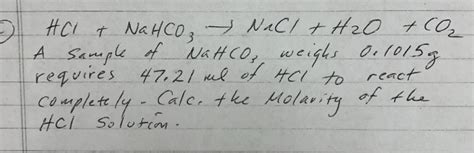 HCl + NaHCO₃ → NaCl + H₂O + CO₂
A sample of NaHCO₃ weighs 0.1015g
requires 47.21 ml of HCl to react
completely. Calc. the Molarity of the
HCl Solution.